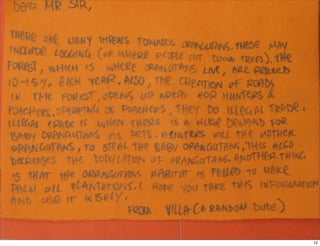 DEAR MR SIR,
THERE ARE MANY THREATS TOWARDS ORANGUTANS. THESE MAY
INCLUDE LOGGING (OR WHERE PEOPLE CUT DOWN TREES). THE
FOREST, WHICH IS WHERE ORANGTANS LIVE, ARE REDUCED
10-15% EACH YEAR. ALSO, THE CREATION OF ROADS
IN THE FOREST, OPENS UP AREAS FOR HUNTERS &
POACHERS. SPEAKING OF POACHERS, THEY DO ILLEGAL TRADE.
ILLEGAL TRADE IS WHEN THERE IS A HUGE DEMAND FOR
BABY ORANGUTANS AS PETS. HUNTERS KILL THE MOTHER
ORANGUTANS, TO STEAL THE BABY ORANGUTANS. THIS ALSO
DECREASES THE POPULATION OF ORANGUTANS. ANOTHER THING
IS THAT THE ORANGUTANS HABITAT IS FELLED TO MAKE
PALM OIL PLANTATIONS. I HOPE YOU TAKE THIS INFORMATION
AND USE IT WISELY.
FROM VILLA (A RANDOM DUDE)